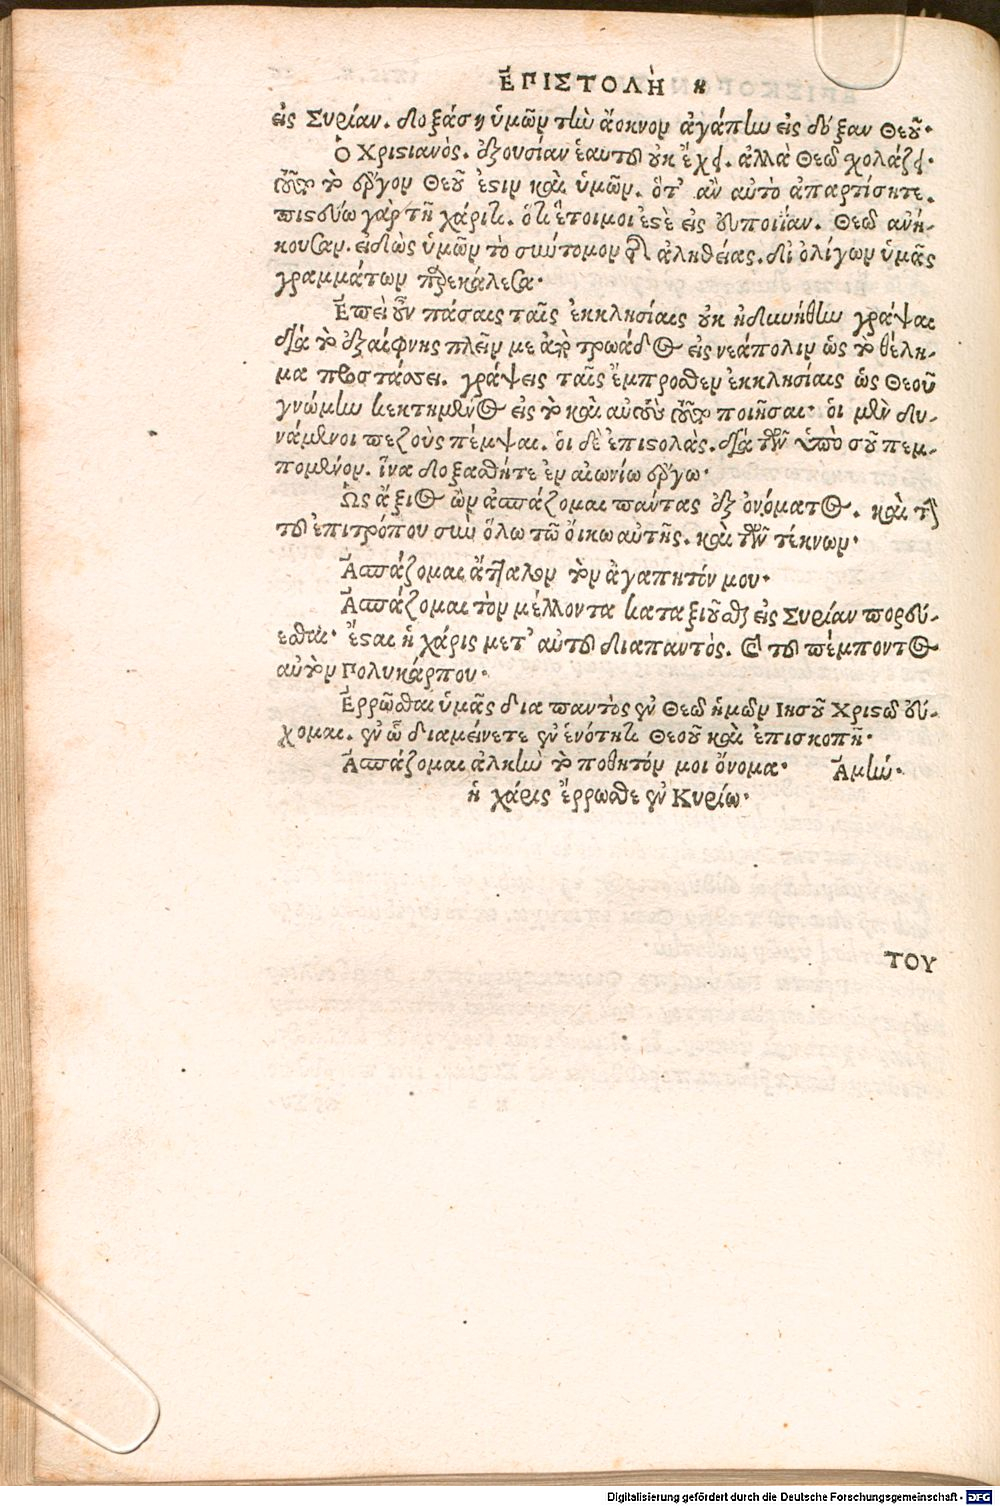 ἘΠΙΣΤΟΛῊ η
εἰς Συρίαν. δοξάσῃ ὑμῶν τὴν ἄοκνον ἀγάπην εἰς δόξαν Θεοῦ.
Ὁ Χριστιανὸς. ἐξουσίαν ἑαυτοῦ οὐκ ἔχει. ἀλλὰ Θεῷ σχολάζει.
τοῦτο τὸ ἔργον Θεοῦ ἐστιν καὶ ὑμῶν. ὅτ' ἂν αὐτὸ ἀπαρτίσητε.
πιστεύω γὰρ τῇ χάριτι. ὅτι ἕτοιμοι ἐστὲ εἰς εὐποιΐαν. Θεῷ ἀνή-
κουσαν. εἰδὼς ὑμῶν τὸ σύντομον τῆς ἀληθείας. δι' ὀλίγων ὑμᾶς
γραμμάτων παρεκάλεσα.
Ἐπεὶ οὖν πάσαις ταῖς ἐκκλησίαις οὐκ ἠδυνήθην γράψαι
διὰ τὸ ἐξαίφνης πλεῖν με ἀπὸ τρωάδος εἰς νεάπολιν ὡς τὸ θέλη-
μα προστάσσει. γράψεις ταῖς ἔμπροσθεν ἐκκλησίαις ὡς Θεοῦ
γνώμην κεκτημένος εἰς τὸ καὶ αὐτοὺς τοῦτο ποιῆσαι. οἱ μὲν δυ-
νάμενοι πεζοὺς πέμψαι. οἱ δὲ ἐπιστολὰς. διὰ τῶν ὑπὸ σοῦ πεμ-
πομένον. ἵνα δοξασθῆτε ἐν αἰωνίω ἔργω.
Ὡς ἄξιος ὢν ἀσπάζομαι πάντας ἐξ ὀνόματος. καὶ τὴν
τοῦ ἐπιτρόπου σὺν ὅλω τῶ οἴκω αὐτῆς. καὶ τῶν τέκνων.
Ἀσπάζομαι ἄτταλον τὸν ἀγαπητόν μου.
Ἀσπάζομαι τὸν μέλλοντα καταξιοῦσθαι εἰς Συρίαν πορεύ-
εσθαι. ἔσται ἡ χάρις μετ' αὐτοῦ διαπαντὸς. καὶ τοῦ πέμποντος
αὐτὸν Πολυκάρπου.
Ἐρρῶσθαι ὑμᾶς δια παντὸς ἐν Θεῷ ἡμῶν Ιησοῦ Χριστῷ εὔ-
χομαι. ἐν ᾧ διαμείνετε ἐν ἑνότητι Θεοῦ καὶ ἐπισκοπῇ.
Ἀσπάζομαι ἀλκὴν τὸ ποθητόν μοι ὄνομα. Ἀμήν.
ἡ χάρις ἔρρωσθε ἐν Κυρίω.
ΤΟΥ
Digitalisierung gefördert durch die Deutsche Forschungsgemeinschaft - DFG